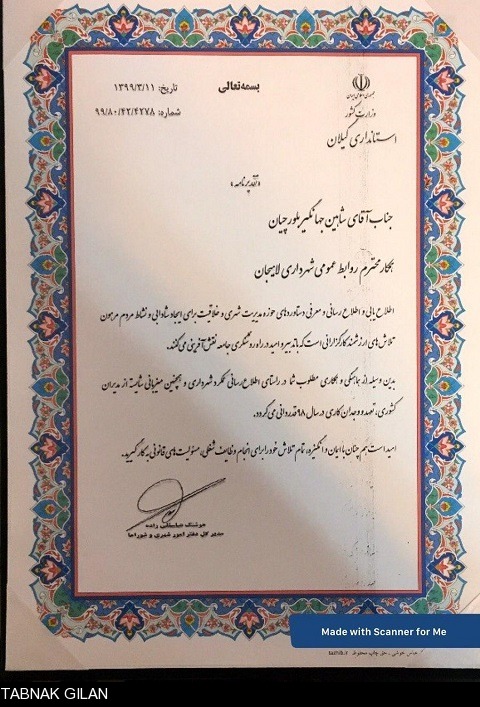 بسمه‌تعالی
تاریخ: ۱۳۹۹/۳/۱۱
شماره: ۹۹/۸۰/۴۲/۴۲۷۸
جمهوری اسلامی ایران
وزارت کشور
استانداری گیلان
«تقدیرنامه»
جناب آقای شاهین جهانگیر بلورچیان
همکار محترم روابط عمومی شهرداری لاهیجان
اطلاع یابی و اطلاع رسانی و معرفی دستاوردهای حوزه مدیریت شهری و خلاقیت برای ایجاد شادابی و نشاط مردم مرهون
تلاش های ارزشمند کارگزارانی است که با تدبیر و امید در راه روشنگری جامعه نقش آفرینی می کنند.
بدین وسیله از هماهنگی و همکاری مطلوب شما در راستای اطلاع رسانی عملکرد شهرداری و همچنین میزبانی شایسته از مدیران
کشوری، تعهد و وجدان کاری در سال ۹۸ قدردانی می گردد.
امید است هم چنان با ایمان و انگیزه، تمام تلاش خود را برای انجام وظائف شغلی، مسئولیت های قانونی به کار گیرید.
هوشنگ عباسقلی زاده
مدیر کل دفتر امور شهری و شوراها
Made with Scanner for Me
TABNAK GILAN